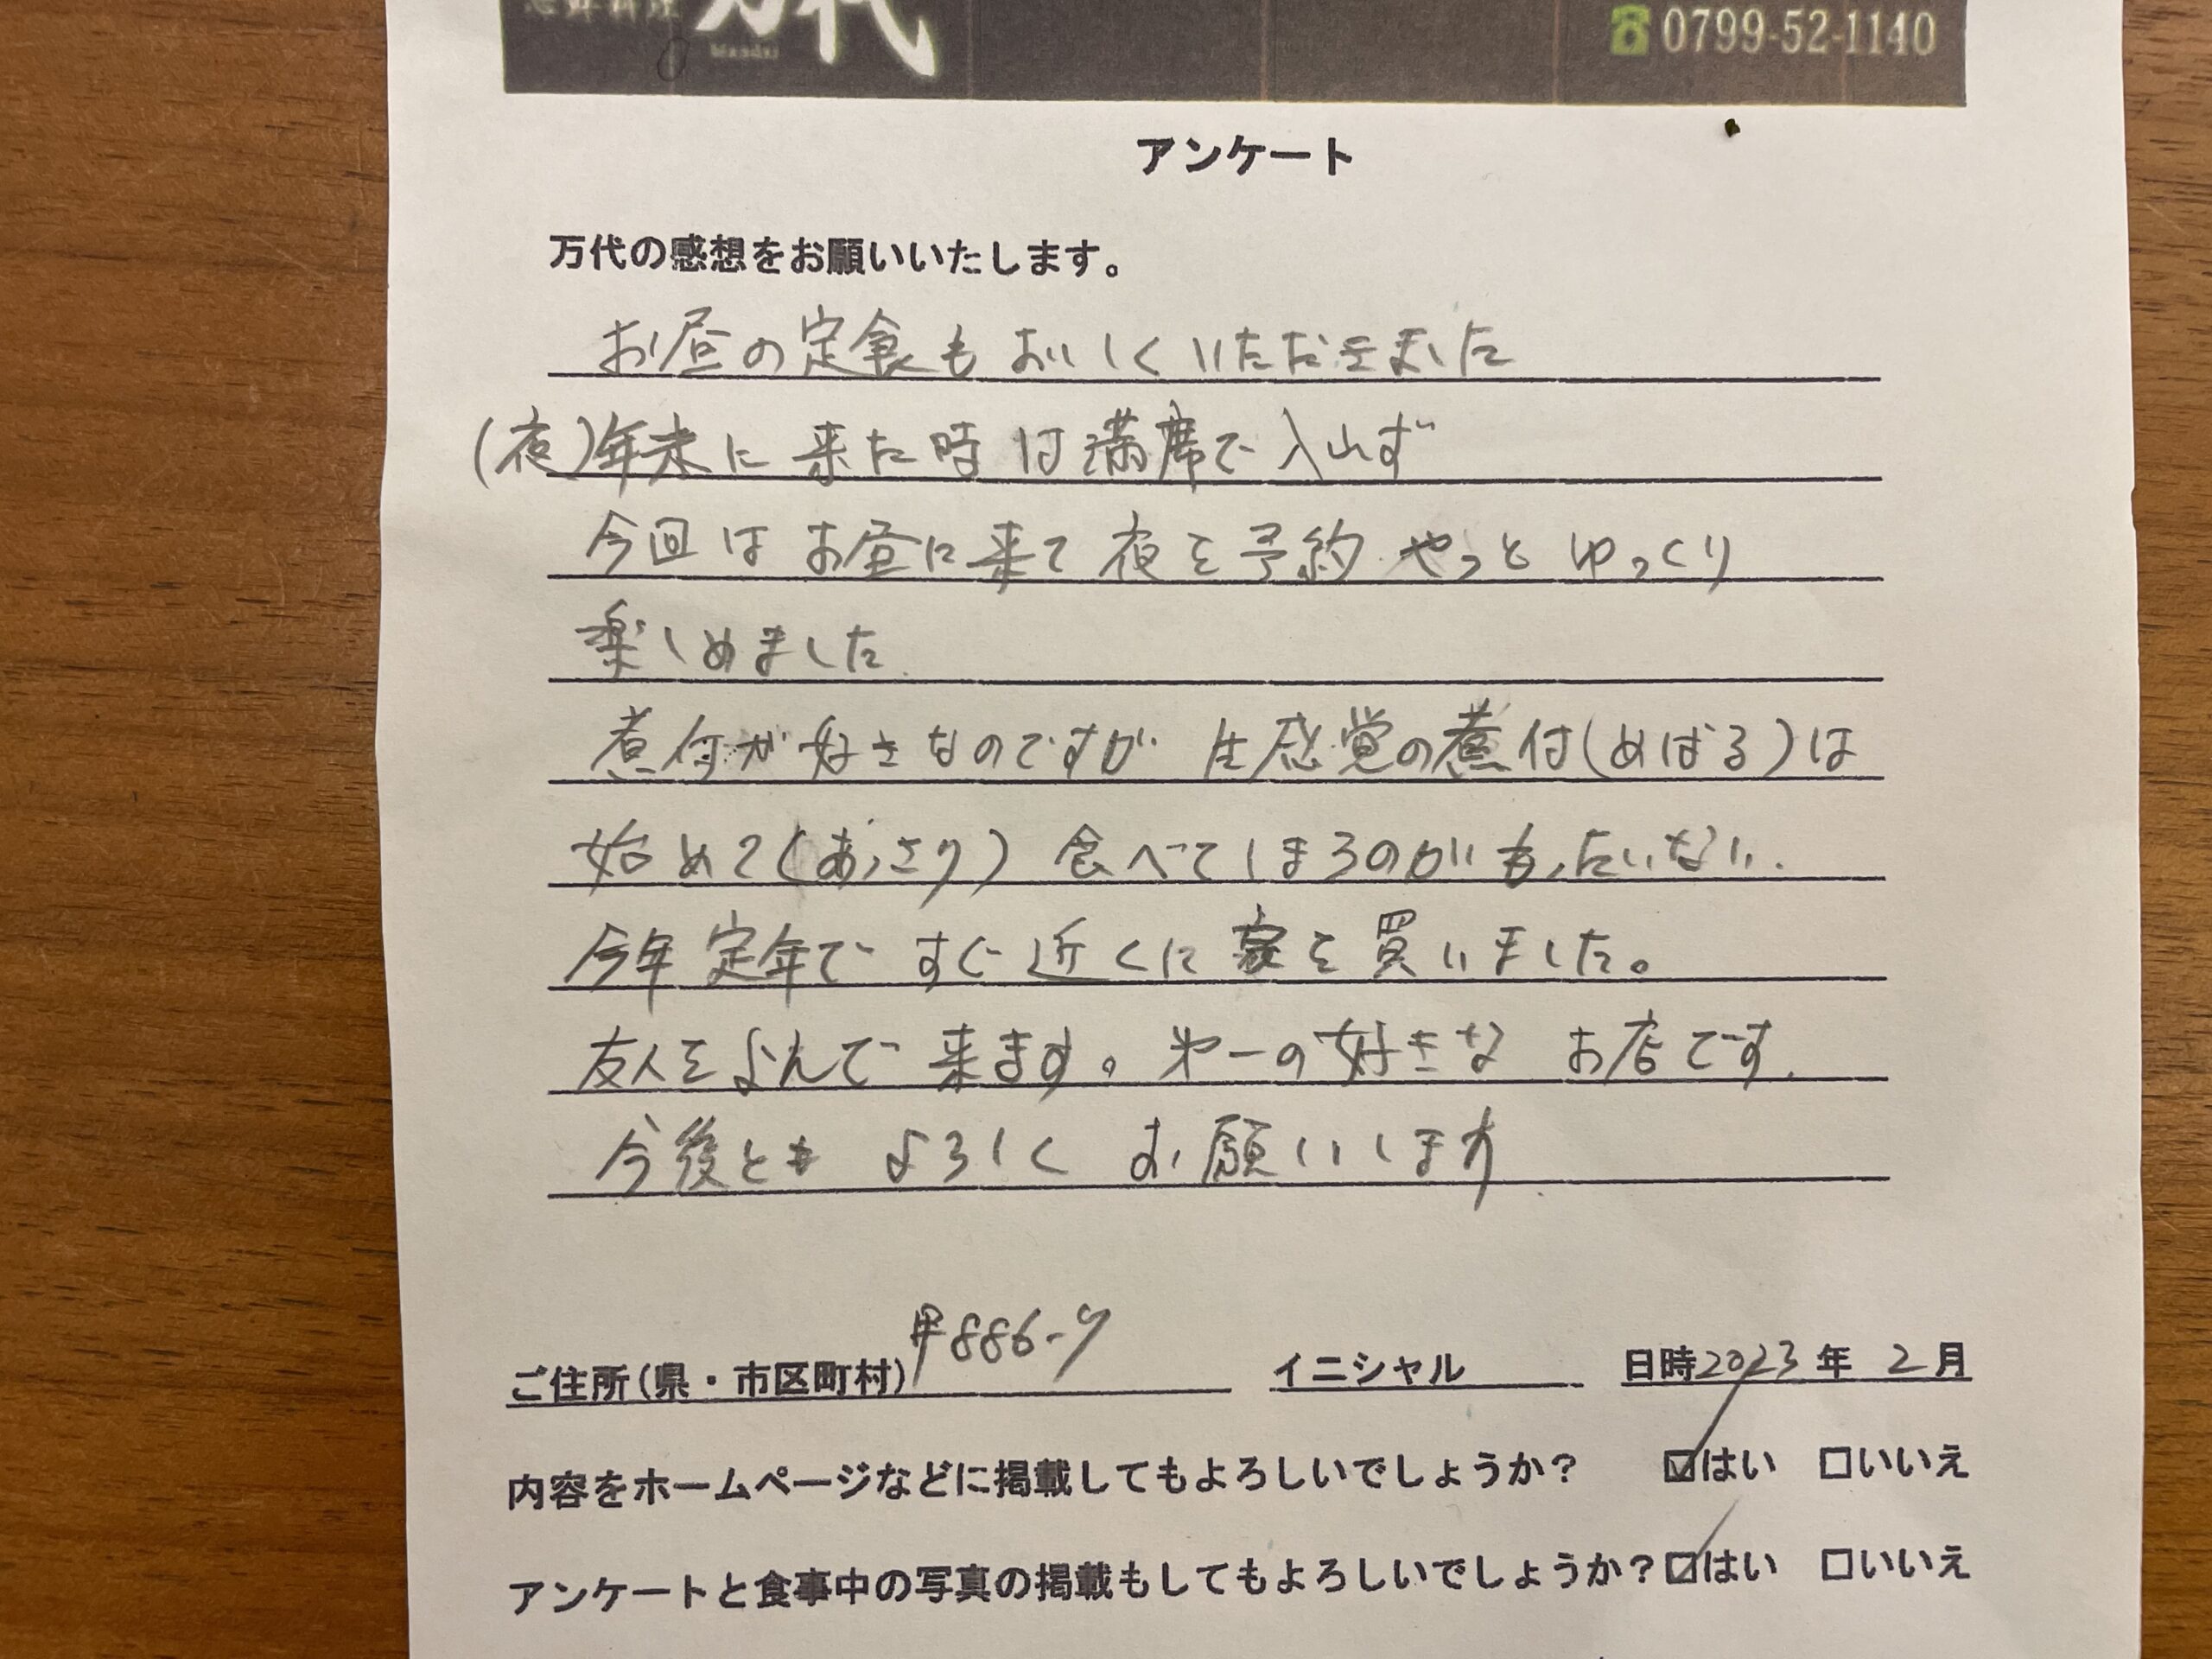 万代
0799-52-1140
アンケート
万代の感想をお願いいたします。
お昼の定食もおいしくいただきました
(夜)年末に来た時は満席で入れず
今回はお昼に来て夜を予約やっとゆっくり
楽しめました
煮付が好きなのですが生感覚の煮付(めばる)は
始めて(あっさり)食べてしまうのがもったいない.
今年定年ですぐ近くに家を買いました。
友人をよんで来ます。第一の好きなお店です.
今後ともよろしくお願いします
ご住所(県・市区町村)甲886-7 イニシャル 日時2023年 2月
内容をホームページなどに掲載してもよろしいでしょうか? ☑はい □いいえ
アンケートと食事中の写真の掲載もしてもよろしいでしょうか?☑はい □いいえ